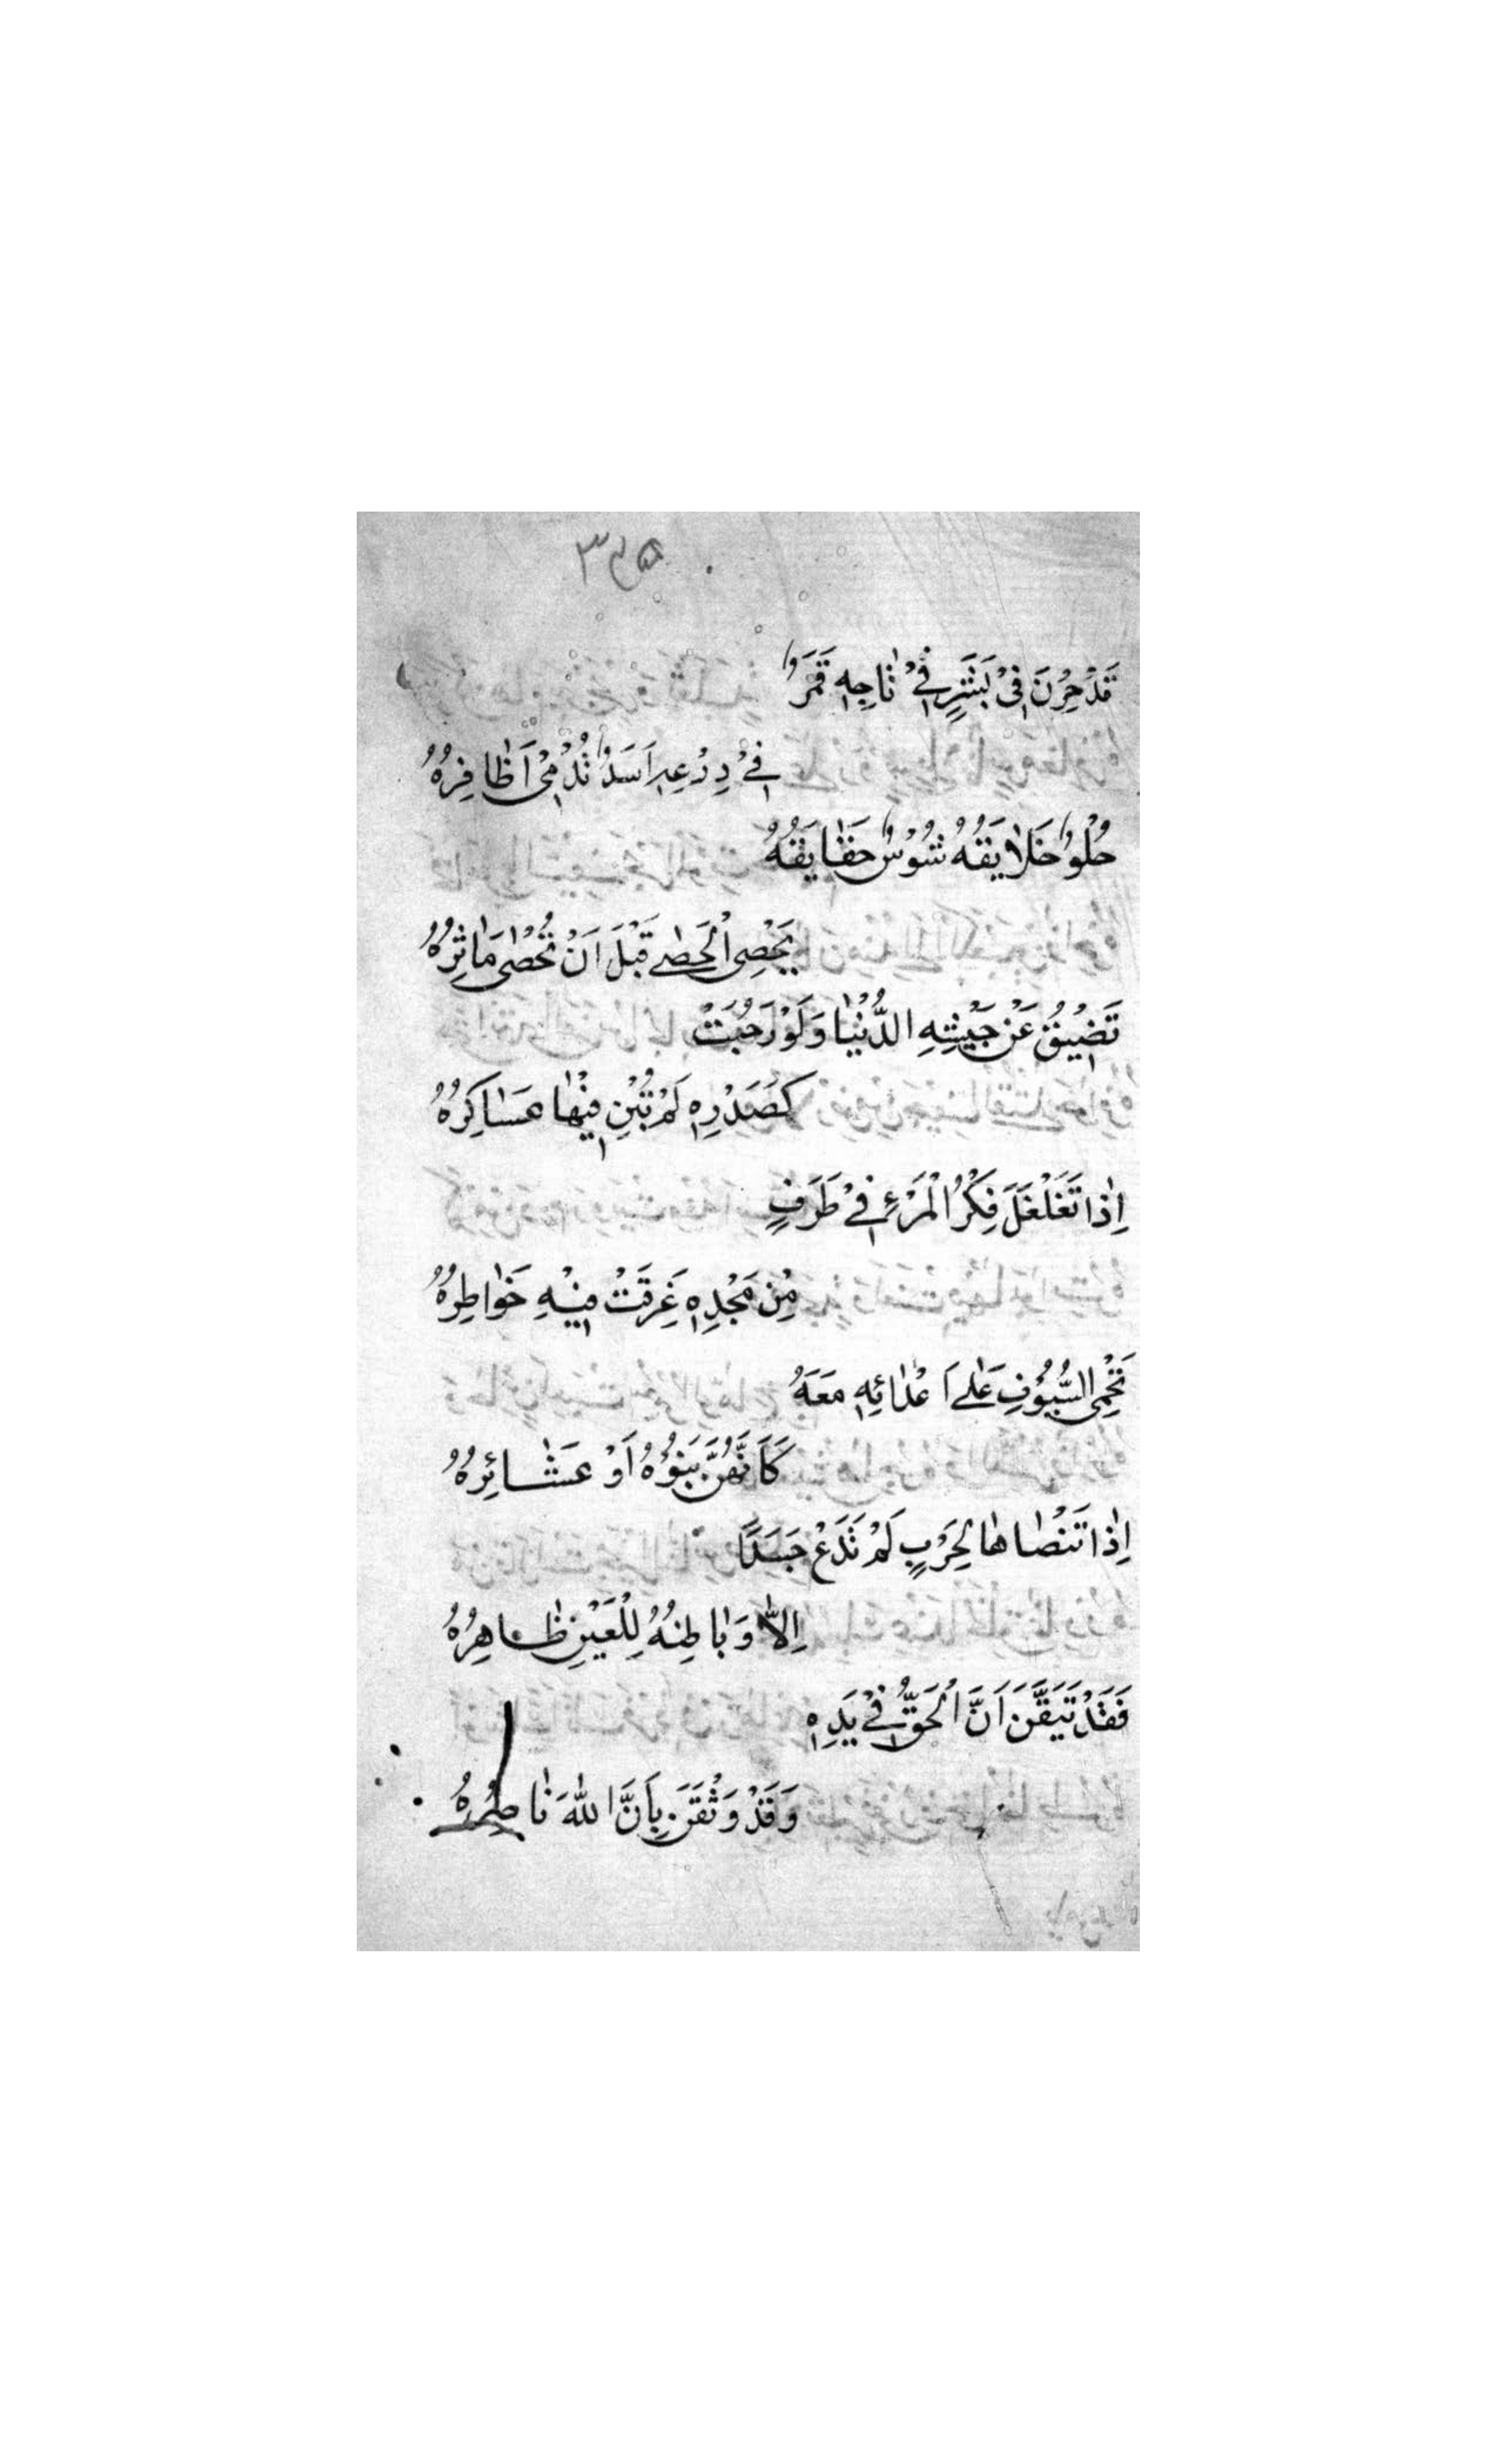 قَدْ حِرْنَ فِیْ بَشَرٍ فِیْ تَاجِهٖ قَمَرٌ
فِیْ دِرْعِهٖ اَسَدٌ تُدْمِیْ اَظَافِرُهُ
حُلْوٌ خَلَایِقُهُ شُوْسٌ حَقَایِقُهُ
یُحْصٰی الْحَصٰی قَبْلَ اَنْ تُحْصٰی مَاٰثِرُهُ
تَضِیْقُ عَنْ جَیْشِهِ الدُّنْیَا وَلَوْ رَحُبَتْ
كَصَدْرِهٖ لَمْ تَبِنْ فِیْهَا عَسَاكِرُهُ
اِذَا تَغَلْغَلَ فِكْرُ الْمَرْءِ فِیْ طَرَفٍ
مِنْ مَجْدِهٖ غَرِقَتْ فِیْهِ خَوَاطِرُهُ
تَحْمِی السُّیُوْفِ عَلٰی اَعْدَائِهٖ مَعَهُ
كَاَنَّهُنَّ بَنُوْهُ اَوْ عَشَائِرُهُ
اِذَا تَنْضَاهَا لِحَرْبٍ لَمْ تَدَعْ جَسَدًا
اِلَّا وَبَاطِنُهُ لِلْعَیْنِ ظَاهِرُهُ
فَقَدْ تَیَقَّنَ اَنَّ الْحَقَّ فِیْ یَدِهٖ
وَقَدْ وَثِقْنَ بِاَنَّ اللهَ نَاصِرُهُ